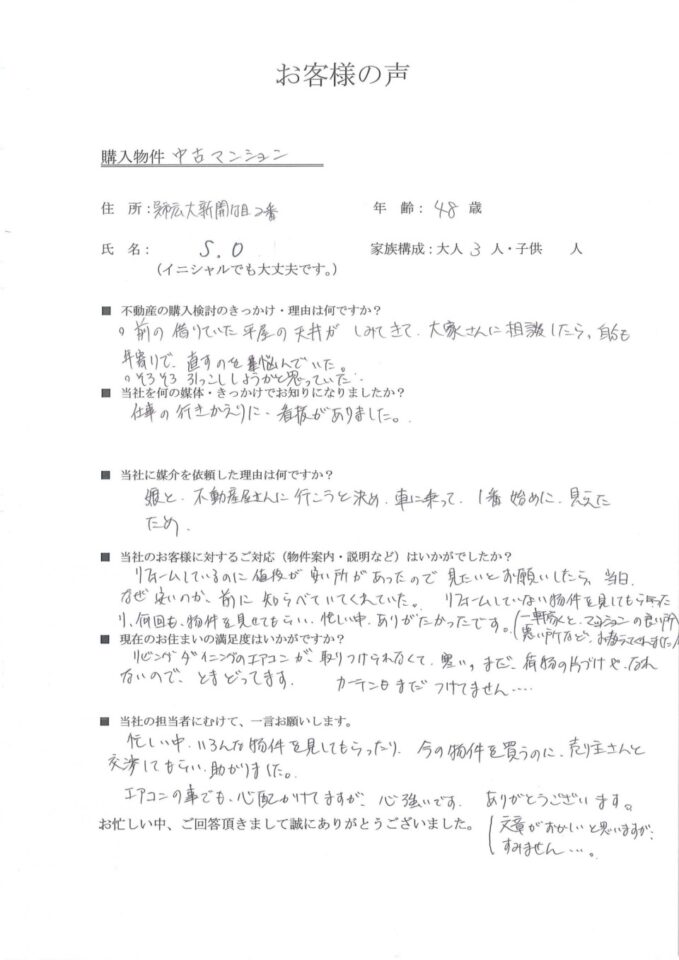 お客様の声
購入物件 中古マンション
住 所：呉市広大新開1丁目2番
年 齢：48 歳
氏 名： S.O
家族構成：大人 3 人・子供 人
（イニシャルでも大丈夫です。）
■ 不動産の購入検討のきっかけ・理由は何ですか？
○前の借りていた平屋の天井がしみてきて、大家さんに相談したら、自分も
年寄りで、直すのを悩んでいた。
○そろそろ引っこししようかと思っていた
■ 当社を何の媒体・きっかけでお知りになりましたか？
仕事の行きかえりに、看板がありました。
■ 当社に媒介を依頼した理由は何ですか？
娘と、不動産屋さんに行こうと決め、車に乗って、1番始めに、見えた
ため、
■ 当社のお客様に対するご対応（物件案内・説明など）はいかがでしたか？
リフォームしているのに値段が安い所があったので見たいとお願いしたら、当日、
なぜ安いのか、前に知らべていてくれていた。 リフォームしていない物件を見してもらった
り、何回も、物件を見せてもらい、忙しい中、ありがたかったです。（一軒家と、マンションの良い所
悪い所など、お教えてくれました）
■ 現在のお住まいの満足度はいかがですか？
リビングダイニングのエアコンが、取りつけられなくて、悪い、まだ、荷物の片づけや、なれ
ないので、とまどってます。 カーテンもまだつけてません‥‥
■ 当社の担当者にむけて、一言お願いします。
忙しい中、いろんな物件を見してもらったり、今の物件を買うのに、売り主さんと
交渉してもらい、助かりました。
エアコンの事でも、心配かけてますが、心強いです。 ありがとうございます。
お忙しい中、ご回答頂きまして誠にありがとうございました。
（文章がおかしいと思いますが、
すみません‥‥。